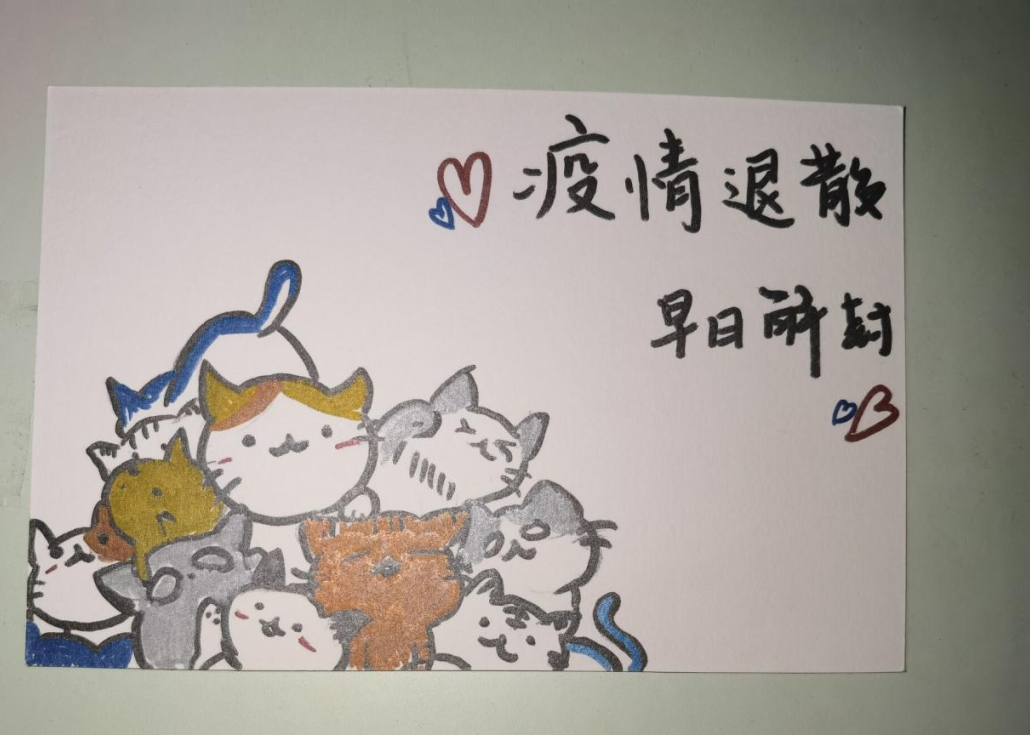 疫情退散
早日解封